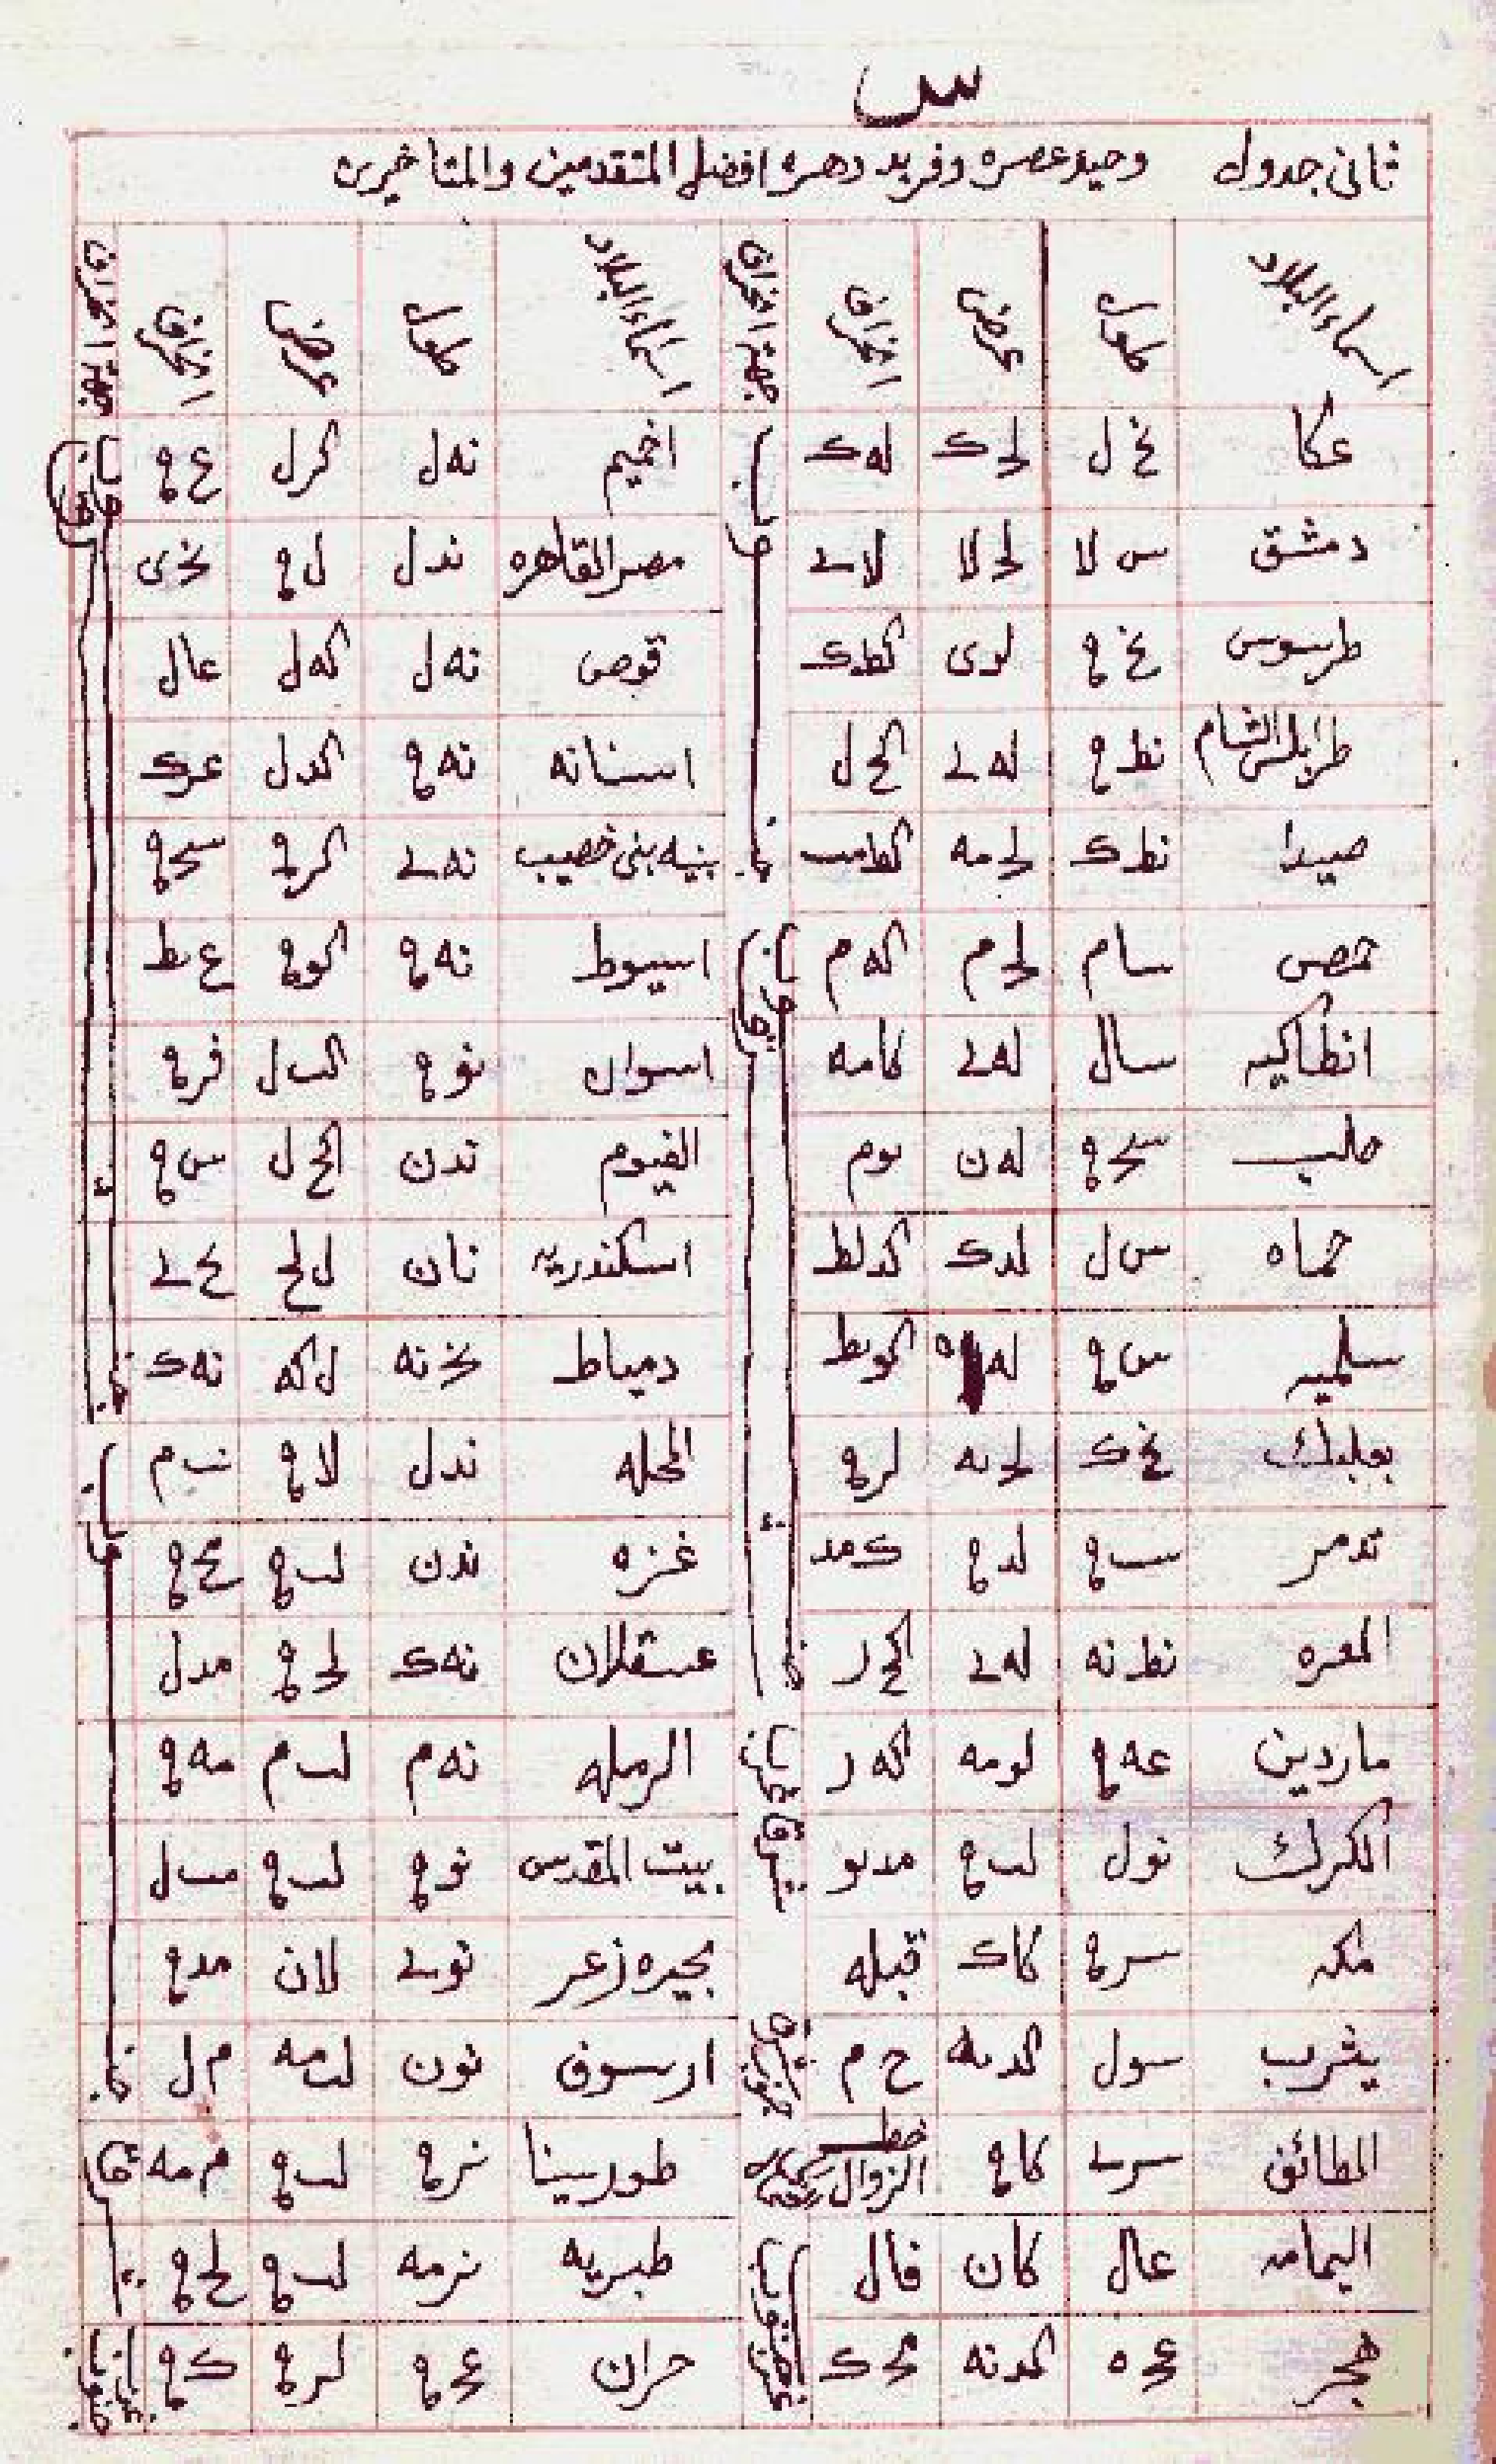 س
ثانى جدول وحيد عصره وفريد دهره افضل المتقدمين والمتاخرين
اسماء البلاد طول عرض انحراف جهة انحراف اسماء البلاد طول عرض انحراف جهة انحراف
عكا نح ل لح ك له ك اخميم نه ل كر ل ع ه
دمشق س لا لح لا لا ے مصر القاهره ند ل ل ه نح ى
طرسوس نح ه لو ى كط ك قوص نه ل كه ل عا ل
طرابلس الشام نط ه له ے كح ل اسنانه نه ه كد ل عر ك
صيدا نط ك لح مه كط مب بنيه بنى خصيب نه ے كر ه سح ه
حمص سا م لح م كه م اسيوط نه ه كو ه ع نط
انطاكيه سا ل له ے كا مه اسوان نو ه كب ل فر ه
حلب سح ه له ن يو م الفيوم ند ن كح ل س ه
حماه س ل لد ك كد لط اسكندريه نا ن ل لح مح ے
سلميه س ه له كو نط دمياط نح نه ل كه نه ك
بعلبك نح ك لح نه لر ه المحله ند ل لا ه نب م
تدمر سب ه لد ه ك مد غزه ند ن لب ه مح ه
المعره نط نه له ے كح ر عسقلان نه ك لح ه مد ل
ماردين عه ه لو مه كه ر الرمله نه م لب م مه ه
الكرك نو ل لب ه مد نو بيت المقدس نو ه لب ه مب ل
مكه سر ه كا ك قبله بحيره زعر نو ے لا ن مد ه
يثرب سو ل كد نه ح م ارسوف نو ن لب مه م ل
الطائف سر ے كا ه خط الزوال طور سينا نر ه لب ه م مه
اليمامه عا ل كا ن فا ل طبريه نر مه لب ه لح ه
هجر عح ه كد نه مح ك حران عح ه لر ه ك ه